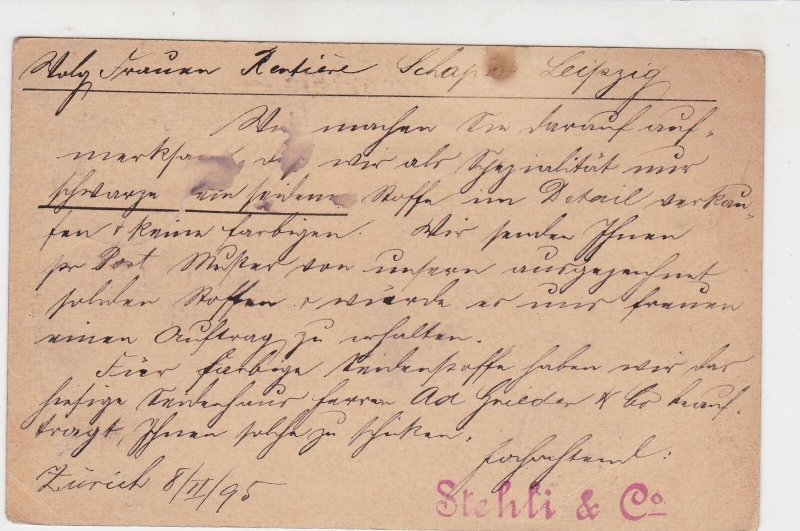 Wolg Frauen Rentière Schaper Leipzig
Wir machen Sie darauf auf-
merksam, dass wir als Spezialität nur
schwarze rein seidene Stoffe im Detail verkau-
fen & keine farbigen. Wir senden Ihnen
pr Post Muster von unsern ausgezeichnet
soliden Stoffen & würde es uns freuen
einen Auftrag zu erhalten.
Für farbige Seidenstoffe haben wir das
hiesige Seidenhaus Herren Ad Grieder & Co beauf-
tragt, Ihnen solche zu schicken.
Hochachtend:
Zürich 8/II/95
Stehli & Co